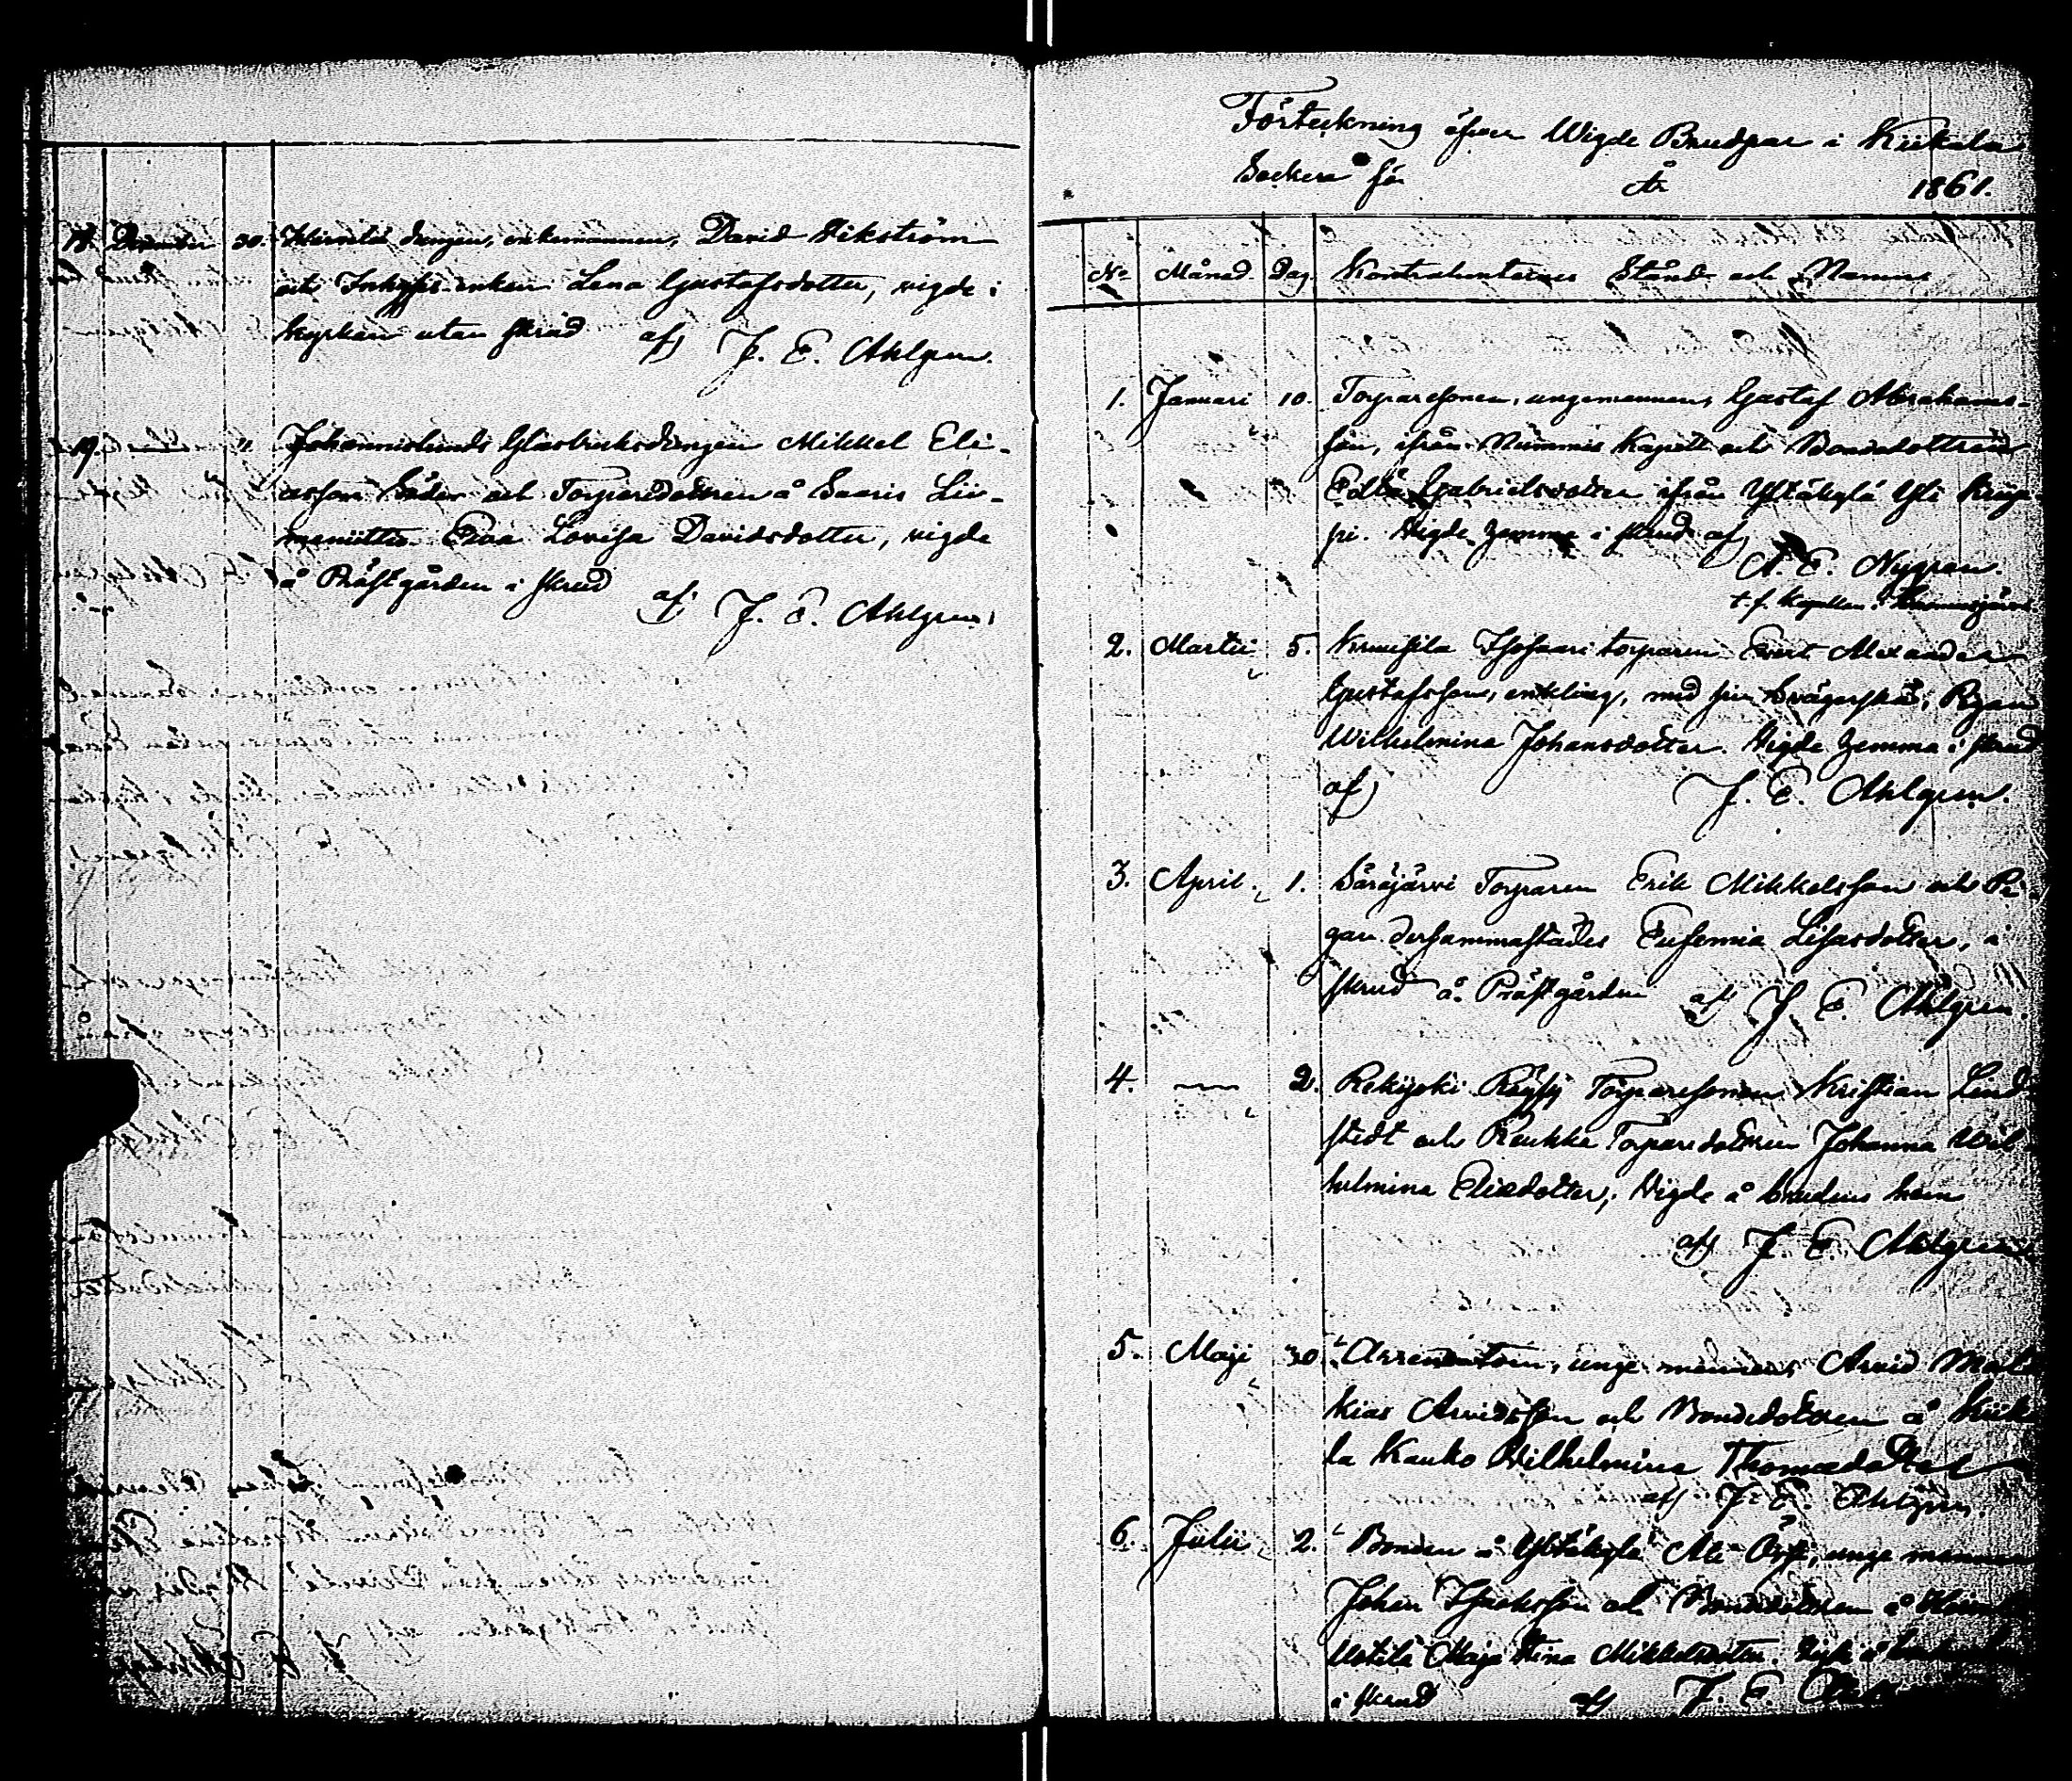 18. December 30. drengen, enkemannen, David Wikström
och Inhyses enkan Lena Gustafsdotter, vigde i
kyrkan utan skrud af J. E. Ahlgren.
19. " Johannislunds Glasbruksdrengen Mikkel Eli-
asson Söder och Torparedottren å Saaris Lii-
maniittu Eva Lovisa Davidsdotter, vigde
å Prästgården i skrud af J. E. Ahlgren.
Förteckning öfver Wigde Brudpar i Kiikala
Sockern för År 1861.
No Månad Dag. Kontrahenternes Stånd och Namn
1. Januari 10. Torparesonen, ungemannen, Gustaf Abrahams-
son, ifrån Nummis Kapell och Bondedottren
Edla Gabrielsdotter ifrån Yltäkylä Yli
pi. Vigde hemma i skrud af
A. E. Nygren.
t. f. Kapellan i
2. Martii 5. Isosaari torparen Evert Alexander
Gustafsson, enkling, med sin Svägerska, Pigan
Wilhelmina Johansdotter. Vigde hemma i skrud
af J. E. Ahlgren.
3. April 1. Säräjärvi Torparen Erik Mikkelsson och Pi-
gan dersammastädes Eufemia Lisasdotter, i
skrud å Prästgården af J. E. Ahlgren.
4. — 2. Rekijoki Räysy Torparesonen Kristian Lind
stedt och Rukka Torparedottren Johanna Wil
helmina Eliedotter, Vigde å brudens hem
af J. E. Ahlgren
5. Maji 30. Arrendatorn, unge mannen Arvid Mat
kias Arvidsson och Bondedottren å Kiika
la Kauko Wilhelmina Thomasdotter
af J. E. Ahlgren.
6. Julii 2. Bonden å Yltäkylä Ali unge mannen
Johan Isaksson och Bondedottren å
Uotila Maja Stina Mikkelsdotter. Vigde å
i skrud af J. E.